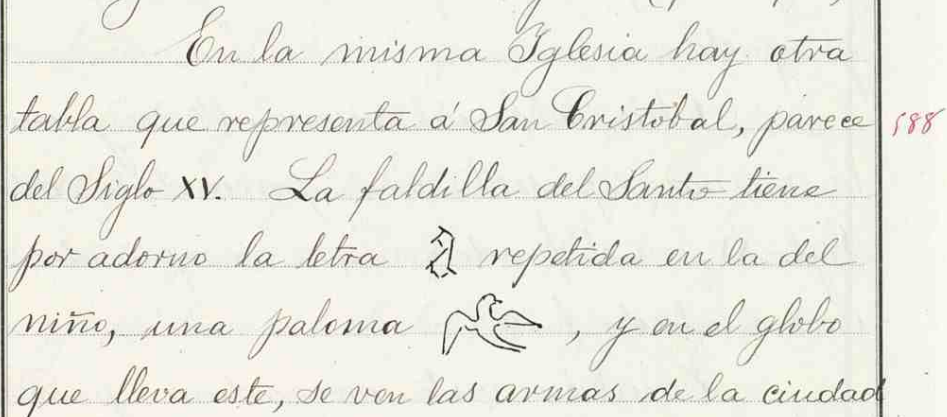 En la misma Iglesia hay otra
tabla que representa á San Cristobal, parece 588
del Siglo XV. La faldilla del Santo tiene
por adorno la letra repetida en la del
niño, una paloma , y en el globo
que lleva este, se ven las armas de la ciudad